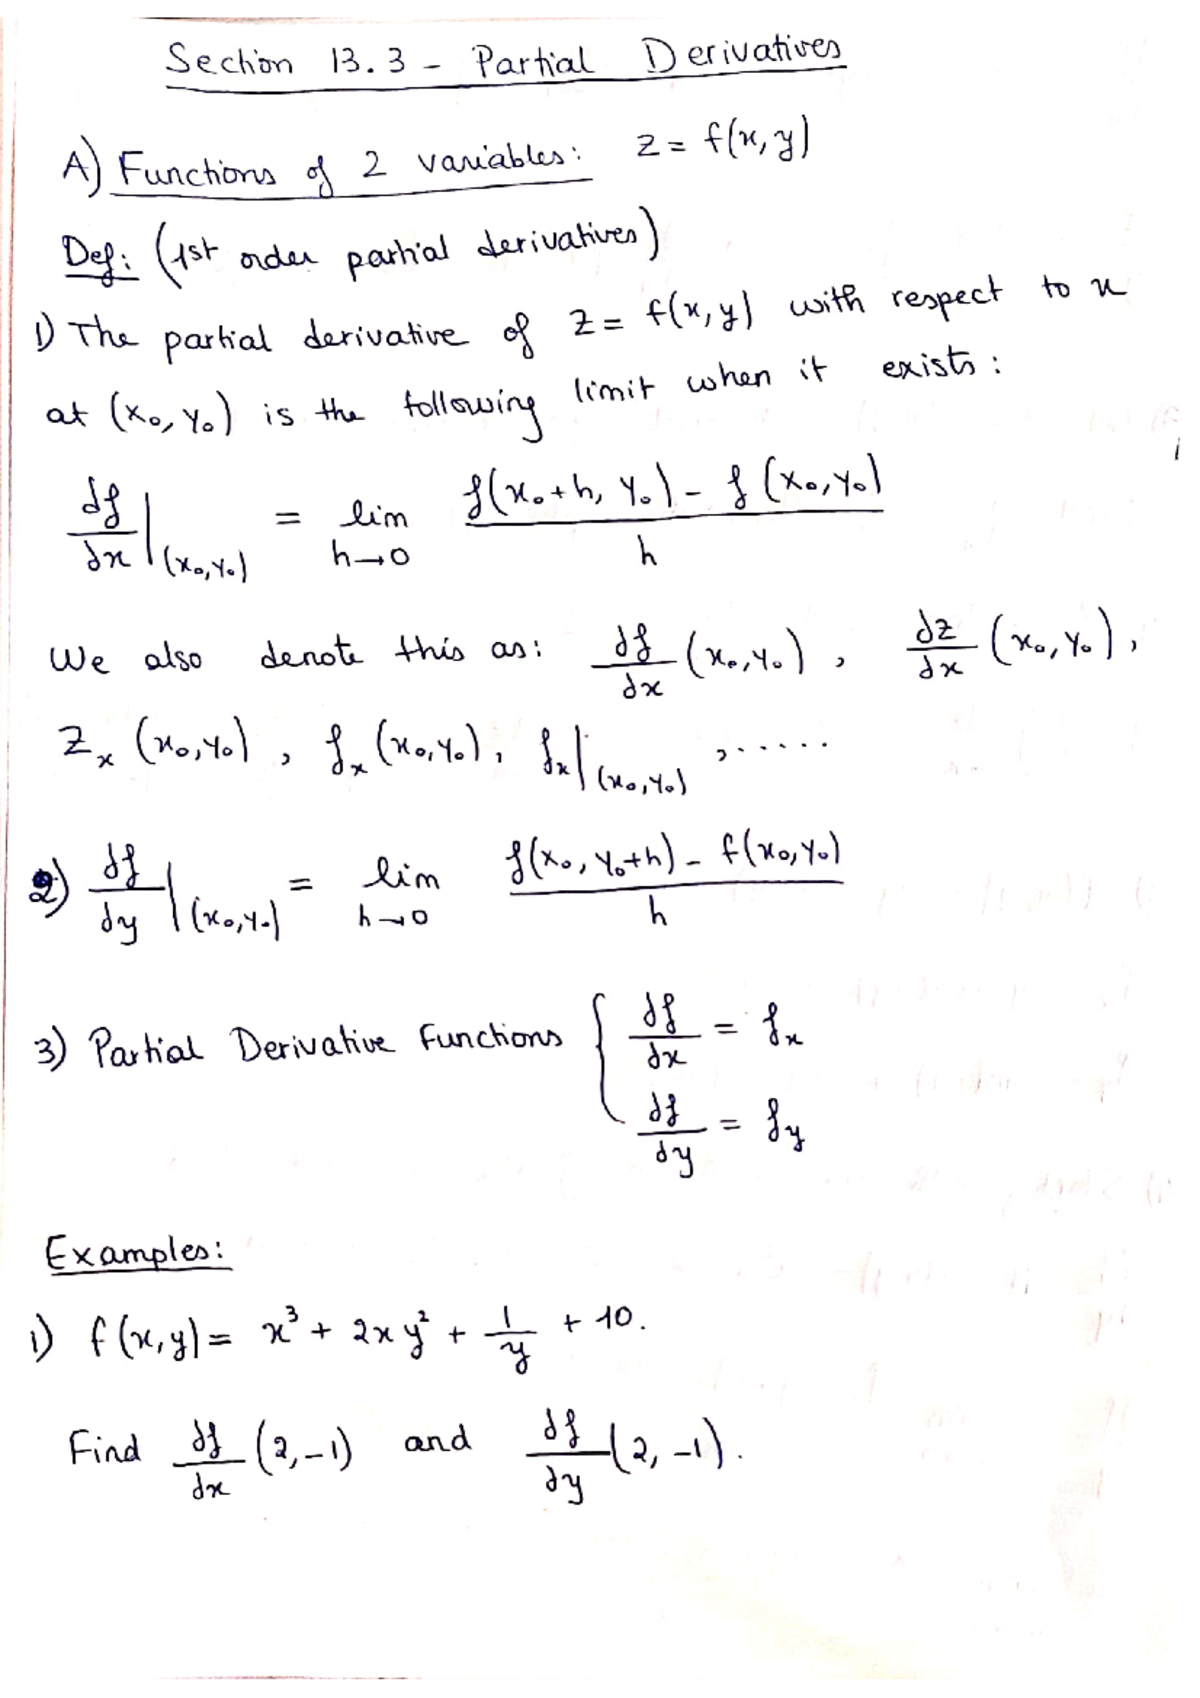 Section 13.3 - Partial Derivatives
A) Functions of 2 variables: z = f(x, y)
Def: (1st order partial derivatives)
1) The partial derivative of z = f(x, y) with respect to x
at (x₀, y₀) is the following limit when it exists:
∂f/∂x |(x₀, y₀) = lim h→0 f(x₀+h, y₀) - f(x₀, y₀) / h
We also denote this as: ∂f/∂x (x₀, y₀), ∂z/∂x (x₀, y₀),
Zₓ (x₀, y₀), fₓ (x₀, y₀), fₓ|(x₀, y₀), .....
2) ∂f/∂y |(x₀, y₀) = lim h→0 f(x₀, y₀+h) - f(x₀, y₀) / h
3) Partial Derivative Functions { ∂f/∂x = fₓ
∂f/∂y = f_y
Examples:
1) f(x, y) = x³ + 2xy² + 1/y + 10.
Find ∂f/∂x (2, -1) and ∂f/∂y (2, -1).